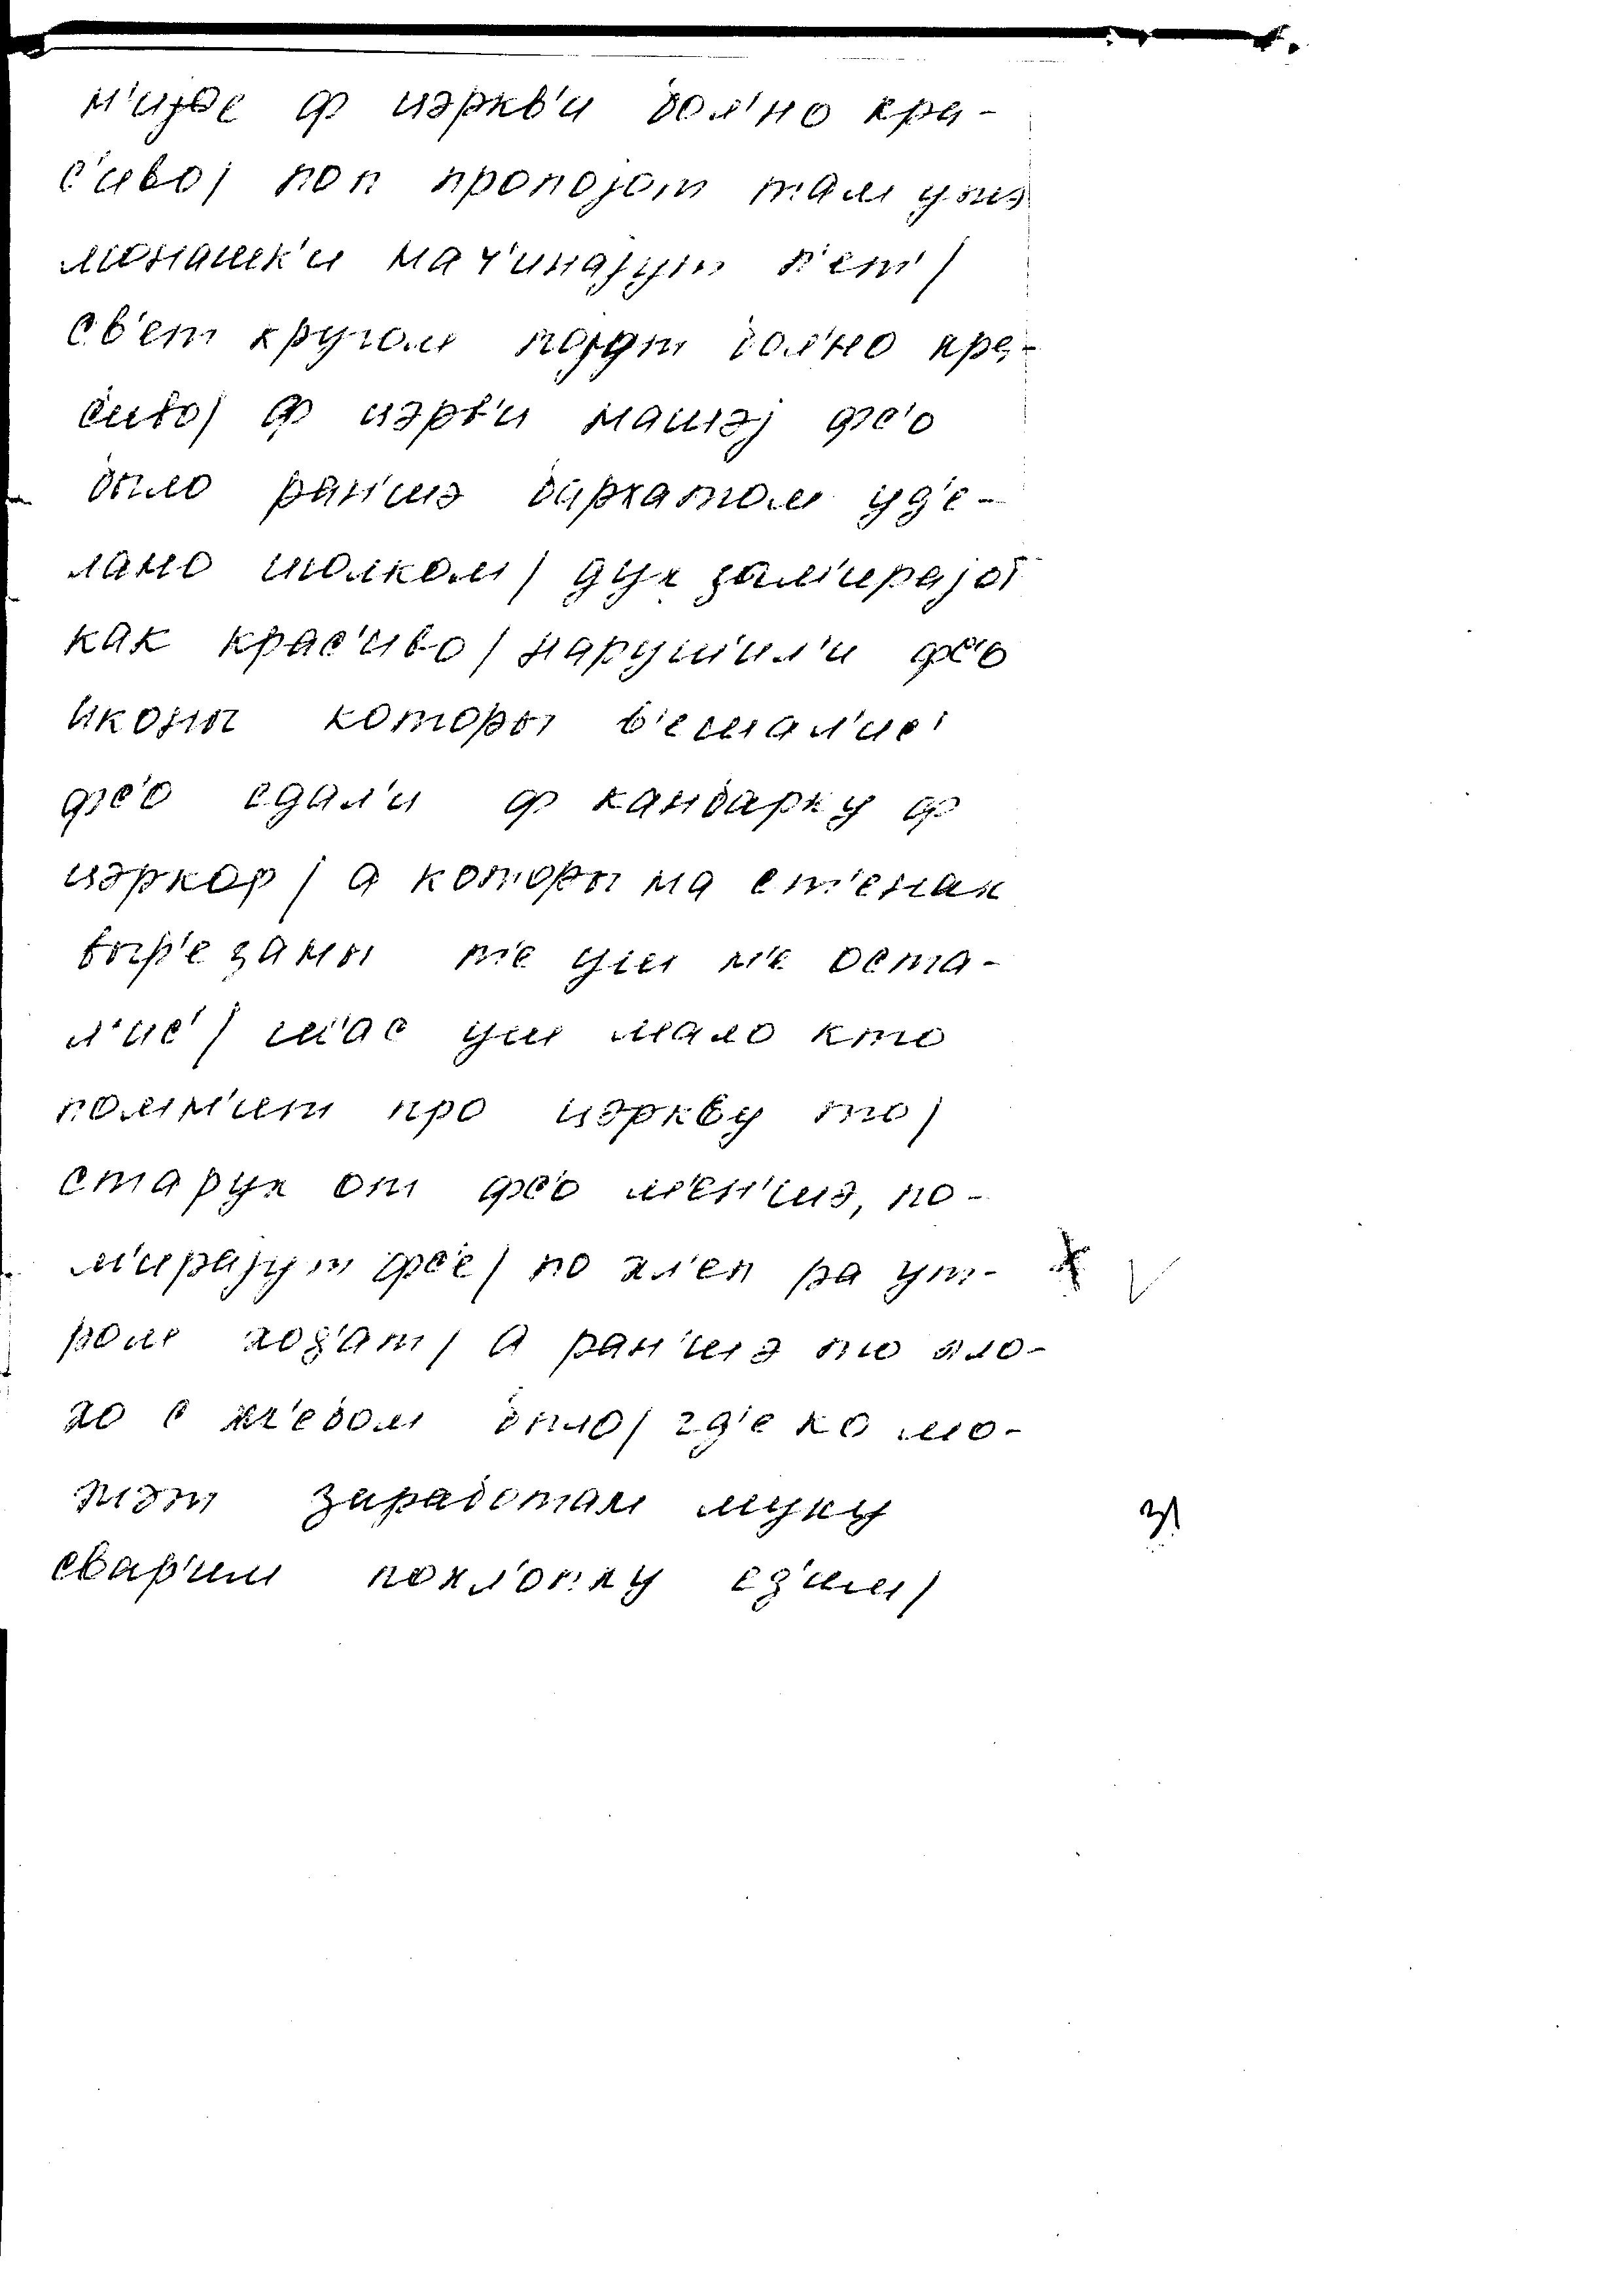 ф цэркв'и бол'но кра-
с'иво/ поп пропојот там ушэ
монашк'и нач'инајут п'ет'/
св'ет кругом појдт бол'но кра-
с'иво/ ф цэрв'и нашэј фс'о
было ран'шэ бархатом уд'е-
лано шолком/ дух зам'ирајот
как крас'иво/ нарушил'и фс'о
иконы которы в'ешал'ис'
фс'о сдал'и ф канбарку ф
цэркоф/ а которы на ст'енах
выр'езаны т'е уш н'е оста-
л'ис'/ ш'ас уш мало кто
помн'ит про цэркву то/
старух от фс'о м'ен'шэ, по-
м'ирајут фс'е/ по хл'еп ра ут-
ром ход'ат/ а ран'шэ то пло-
хо с хл'ебом было/ гд'е ко мо-
жэт заработам муку
свар'им похл'опку јед'им/